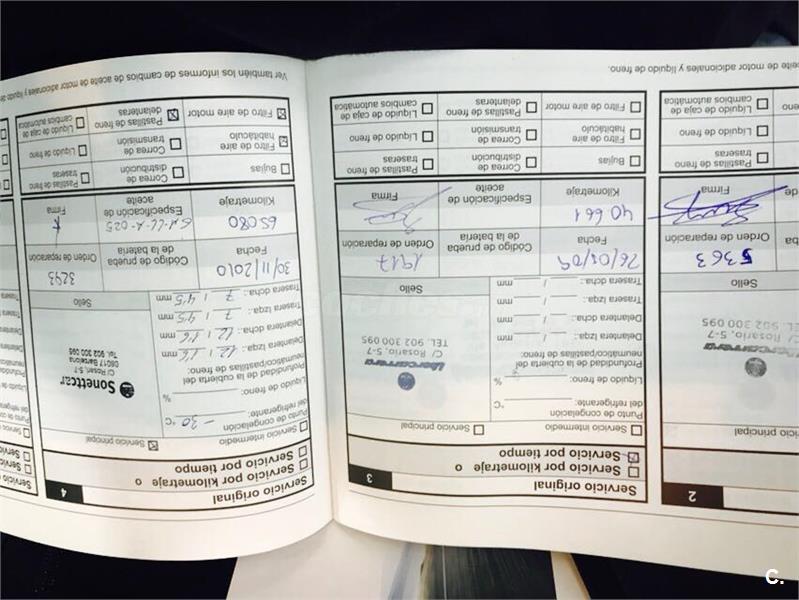 Servicio original
2
5363
Orden de reparación
Firma
Sello
C/ Rosario, 5-7
TEL. 902 300 095
Pastillas de freno traseras
Líquido de freno
Líquido de caja de cambios automática
Servicio original
3
Servicio por kilometraje o
Servicio por tiempo
Servicio intermedio
Servicio principal
Punto de congelación
del refrigerante: °C
Líquido de freno: %
Profundidad de la cubierta del
neumático/pastillas de freno:
Delantera Izqa: / mm
Delantera dcha.: / mm
Trasera Izqa: / mm
Trasera dcha.: / mm
C/ Rosario, 5-7
TEL. 902 300 095
Sello
26/03/09
1917
Fecha
Código de prueba de la batería
Orden de reparación
40 661
Kilometraje
Especificación de aceite
Firma
Bujías
Correa de distribución
Pastillas de freno traseras
Filtro de aire habitáculo
Correa de transmisión
Líquido de freno
Filtro de aire motor
Pastillas de freno delanteras
Líquido de caja de cambios automática
Servicio original
4
Servicio por kilometraje o
Servicio por tiempo
Servicio intermedio
Servicio principal
Punto de congelación
del refrigerante: -30 °C
Líquido de freno: %
Profundidad de la cubierta del
neumático/pastillas de freno:
Delantera Izqa: 12 / 16 mm
Delantera dcha.: 12 / 16 mm
Trasera Izqa: 7 / 45 mm
Trasera dcha.: 7 / 45 mm
Sonettcar
C/ Roser, 5-7
08017 Barcelona
Tel. 902 300 095
Sello
30/11/2010
3293
Fecha
Código de prueba de la batería
Orden de reparación
65080
Kilometraje
Especificación de aceite
Firma
Bujías
Correa de distribución
Pastillas de freno traseras
Filtro de aire habitáculo
Correa de transmisión
Líquido de freno
Filtro de aire motor
Pastillas de freno delanteras
Líquido de caja de cambios automática
Ver también los informes de cambios de aceite de motor adicionales y líquido de
eite de motor adicionales y líquido de freno.
C.